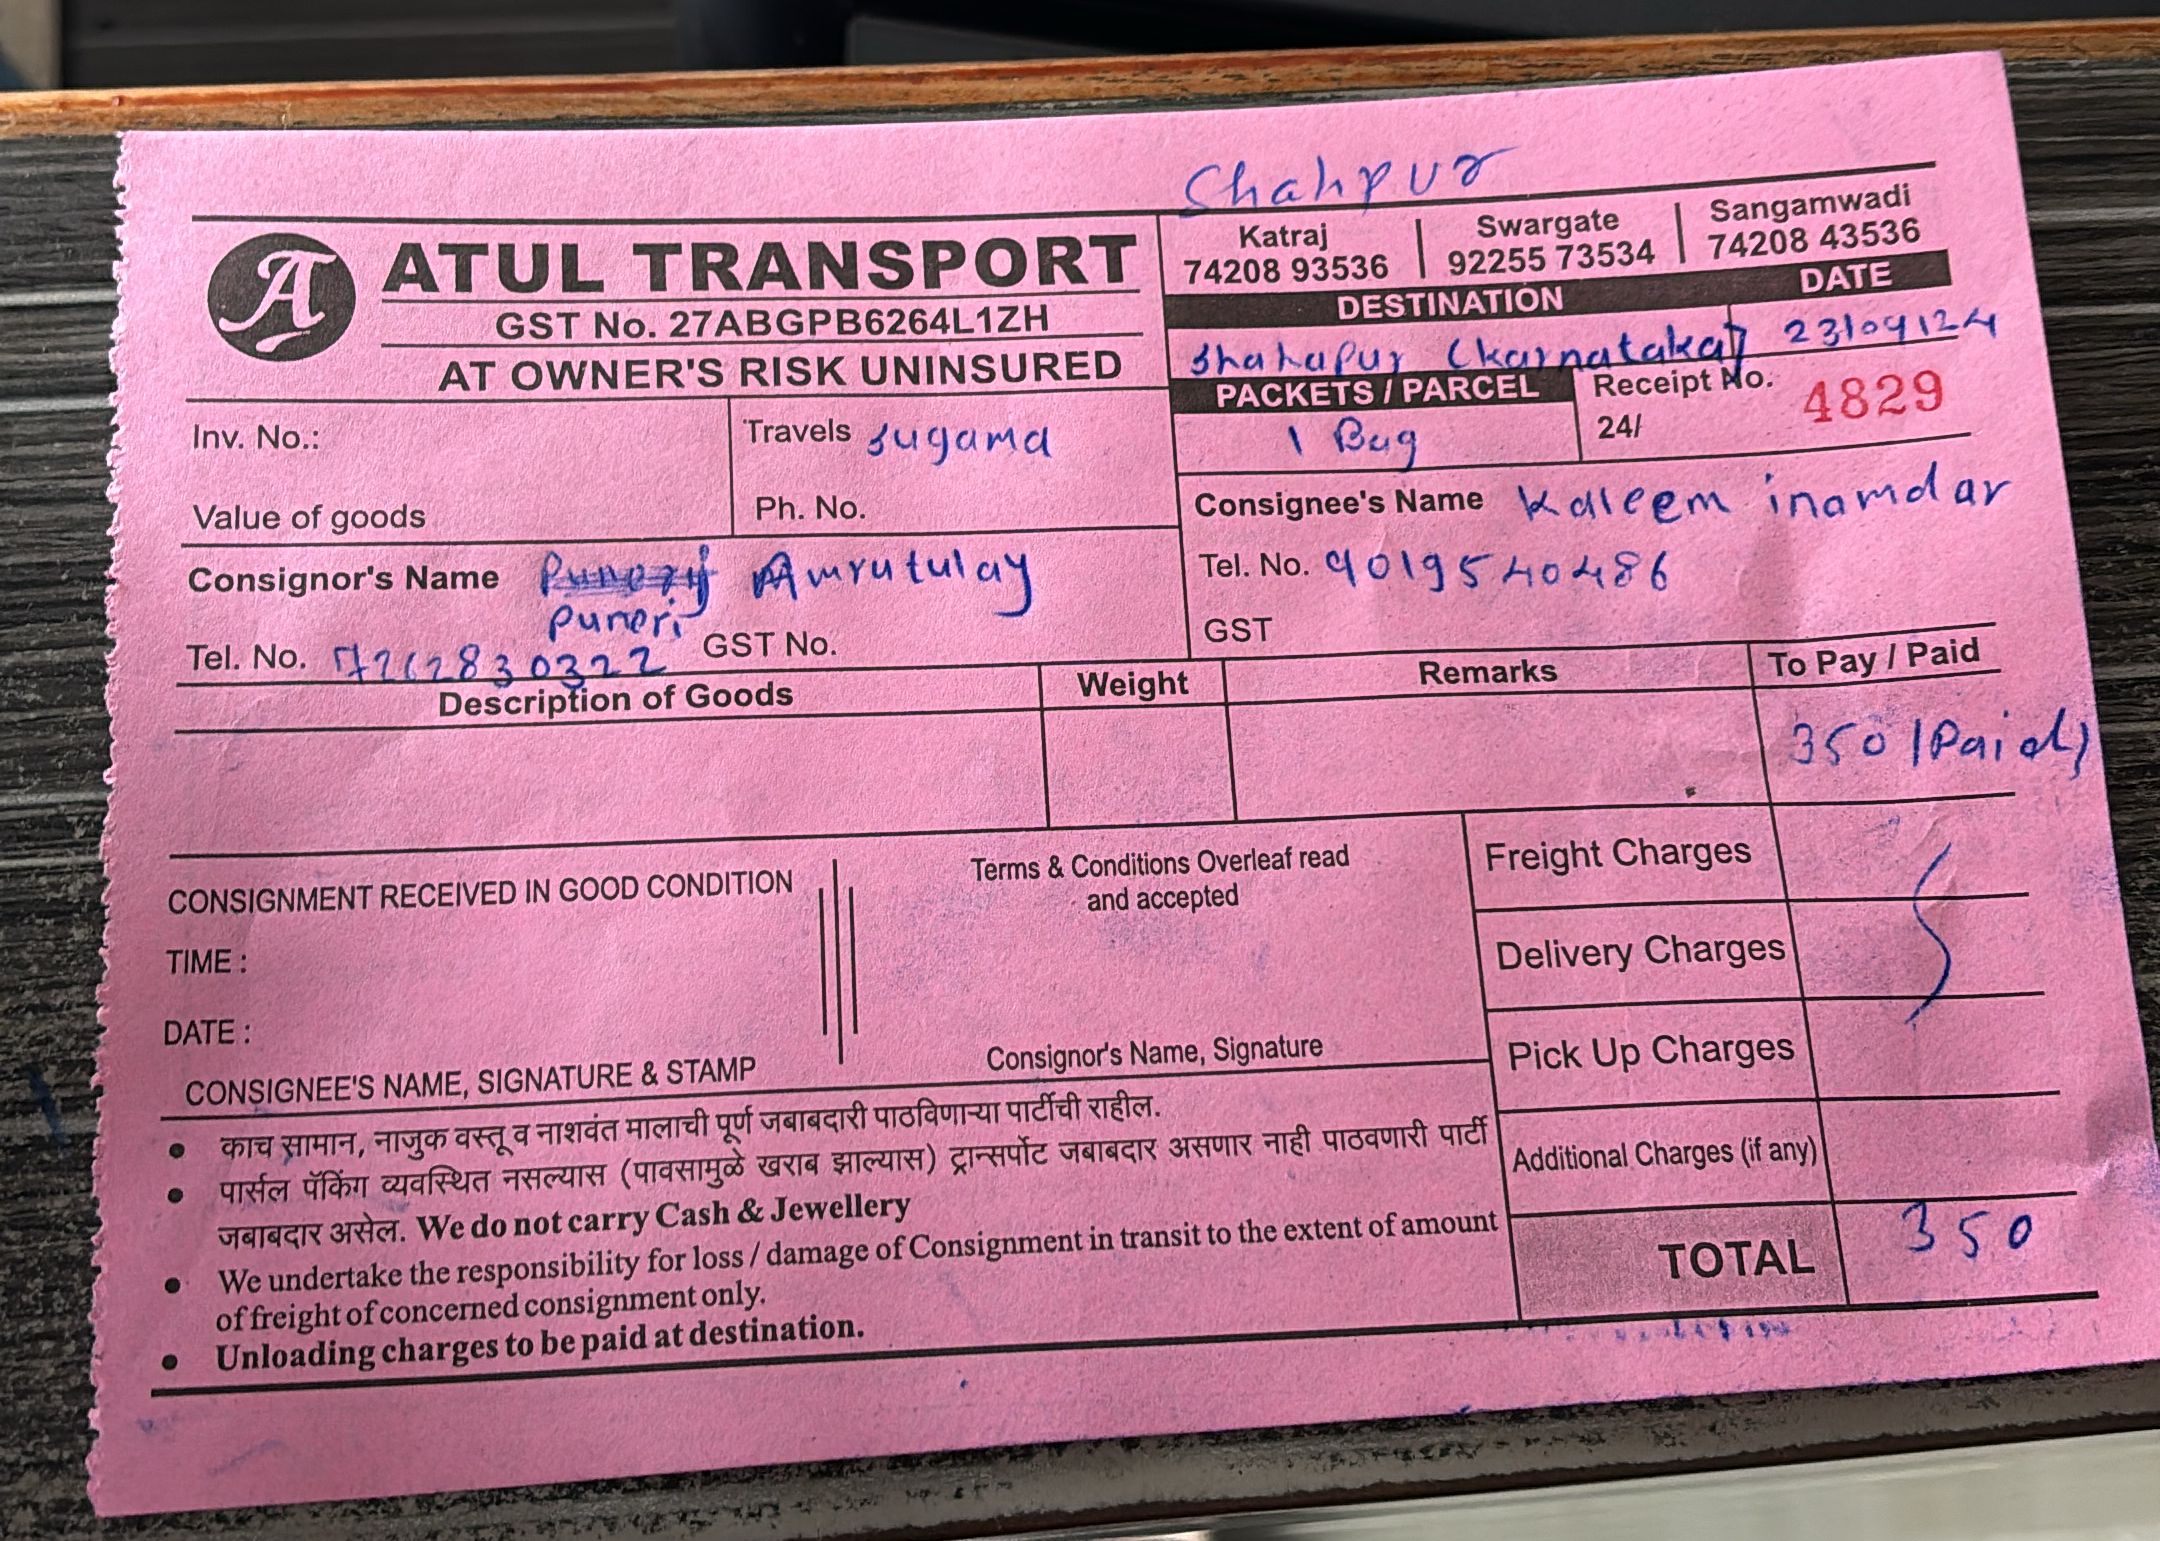 Shahpur
ATUL TRANSPORT
GST No. 27ABGPB6264L1ZH
AT OWNER'S RISK UNINSURED
Katraj
74208 93536
Swargate
92255 73534
Sangamwadi
74208 43536
DESTINATION
DATE
Shahapur (Karnataka)
23/09/24
PACKETS / PARCEL
1 Bag
Receipt No.
24/
4829
Inv. No.:
Value of goods
Travels Sugama
Ph. No.
Consignor's Name Amrutulay
Puneri
Tel. No. 7262830322 GST No.
Consignee's Name Kaleem inamdar
Tel. No. 9019540486
GST
Description of Goods
Weight
Remarks
To Pay / Paid
350 (Paid)
CONSIGNMENT RECEIVED IN GOOD CONDITION
TIME :
DATE :
CONSIGNEE'S NAME, SIGNATURE & STAMP
Terms & Conditions Overleaf read
and accepted
Consignor's Name, Signature
Freight Charges
Delivery Charges
Pick Up Charges
Additional Charges (if any)
TOTAL 350
• काच सामान, नाजुक वस्तू व नाशवंत मालाची पूर्ण जबाबदारी पाठविणाऱ्या पार्टीची राहील.
• पार्सल पॅकिंग व्यवस्थित नसल्यास (पावसामुळे खराब झाल्यास) ट्रान्सपोर्ट जबाबदार असणार नाही पाठवणारी पार्टी
जबाबदार असेल. We do not carry Cash & Jewellery
• We undertake the responsibility for loss / damage of Consignment in transit to the extent of amount
of freight of concerned consignment only.
• Unloading charges to be paid at destination.